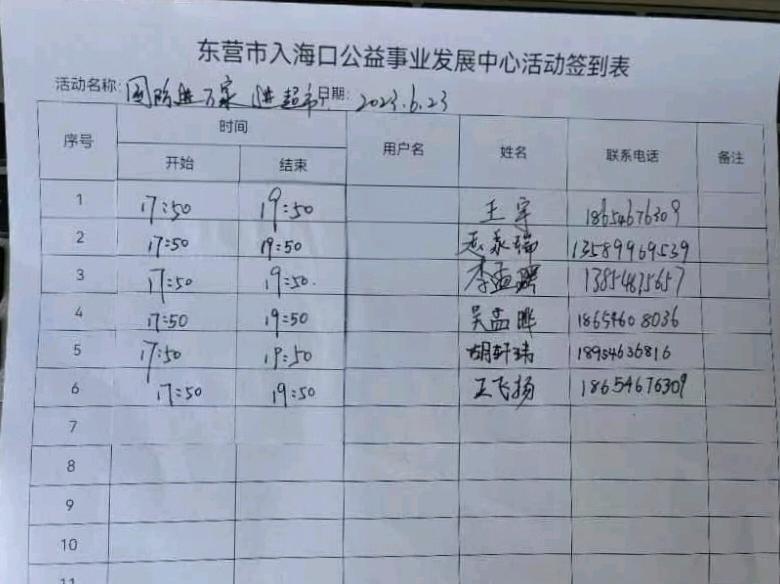 东营市入海口公益事业发展中心活动签到表
活动名称: 国防进万家 进超市 日期: 2023.6.23
序号 时间 用户名 姓名 联系电话 备注
开始 结束
1 17:50 19:50 王宇 18654676309
2 17:50 19:50 孟永瑞 13589969539
3 17:50 19:50. 李孟 13854875657
4 17:50 19:50 吴孟晔 18654608036
5 17:50 19:50 胡轩玮 18954636816
6 17:50 19:50 王飞扬 18654676309
7
8
9
10
11